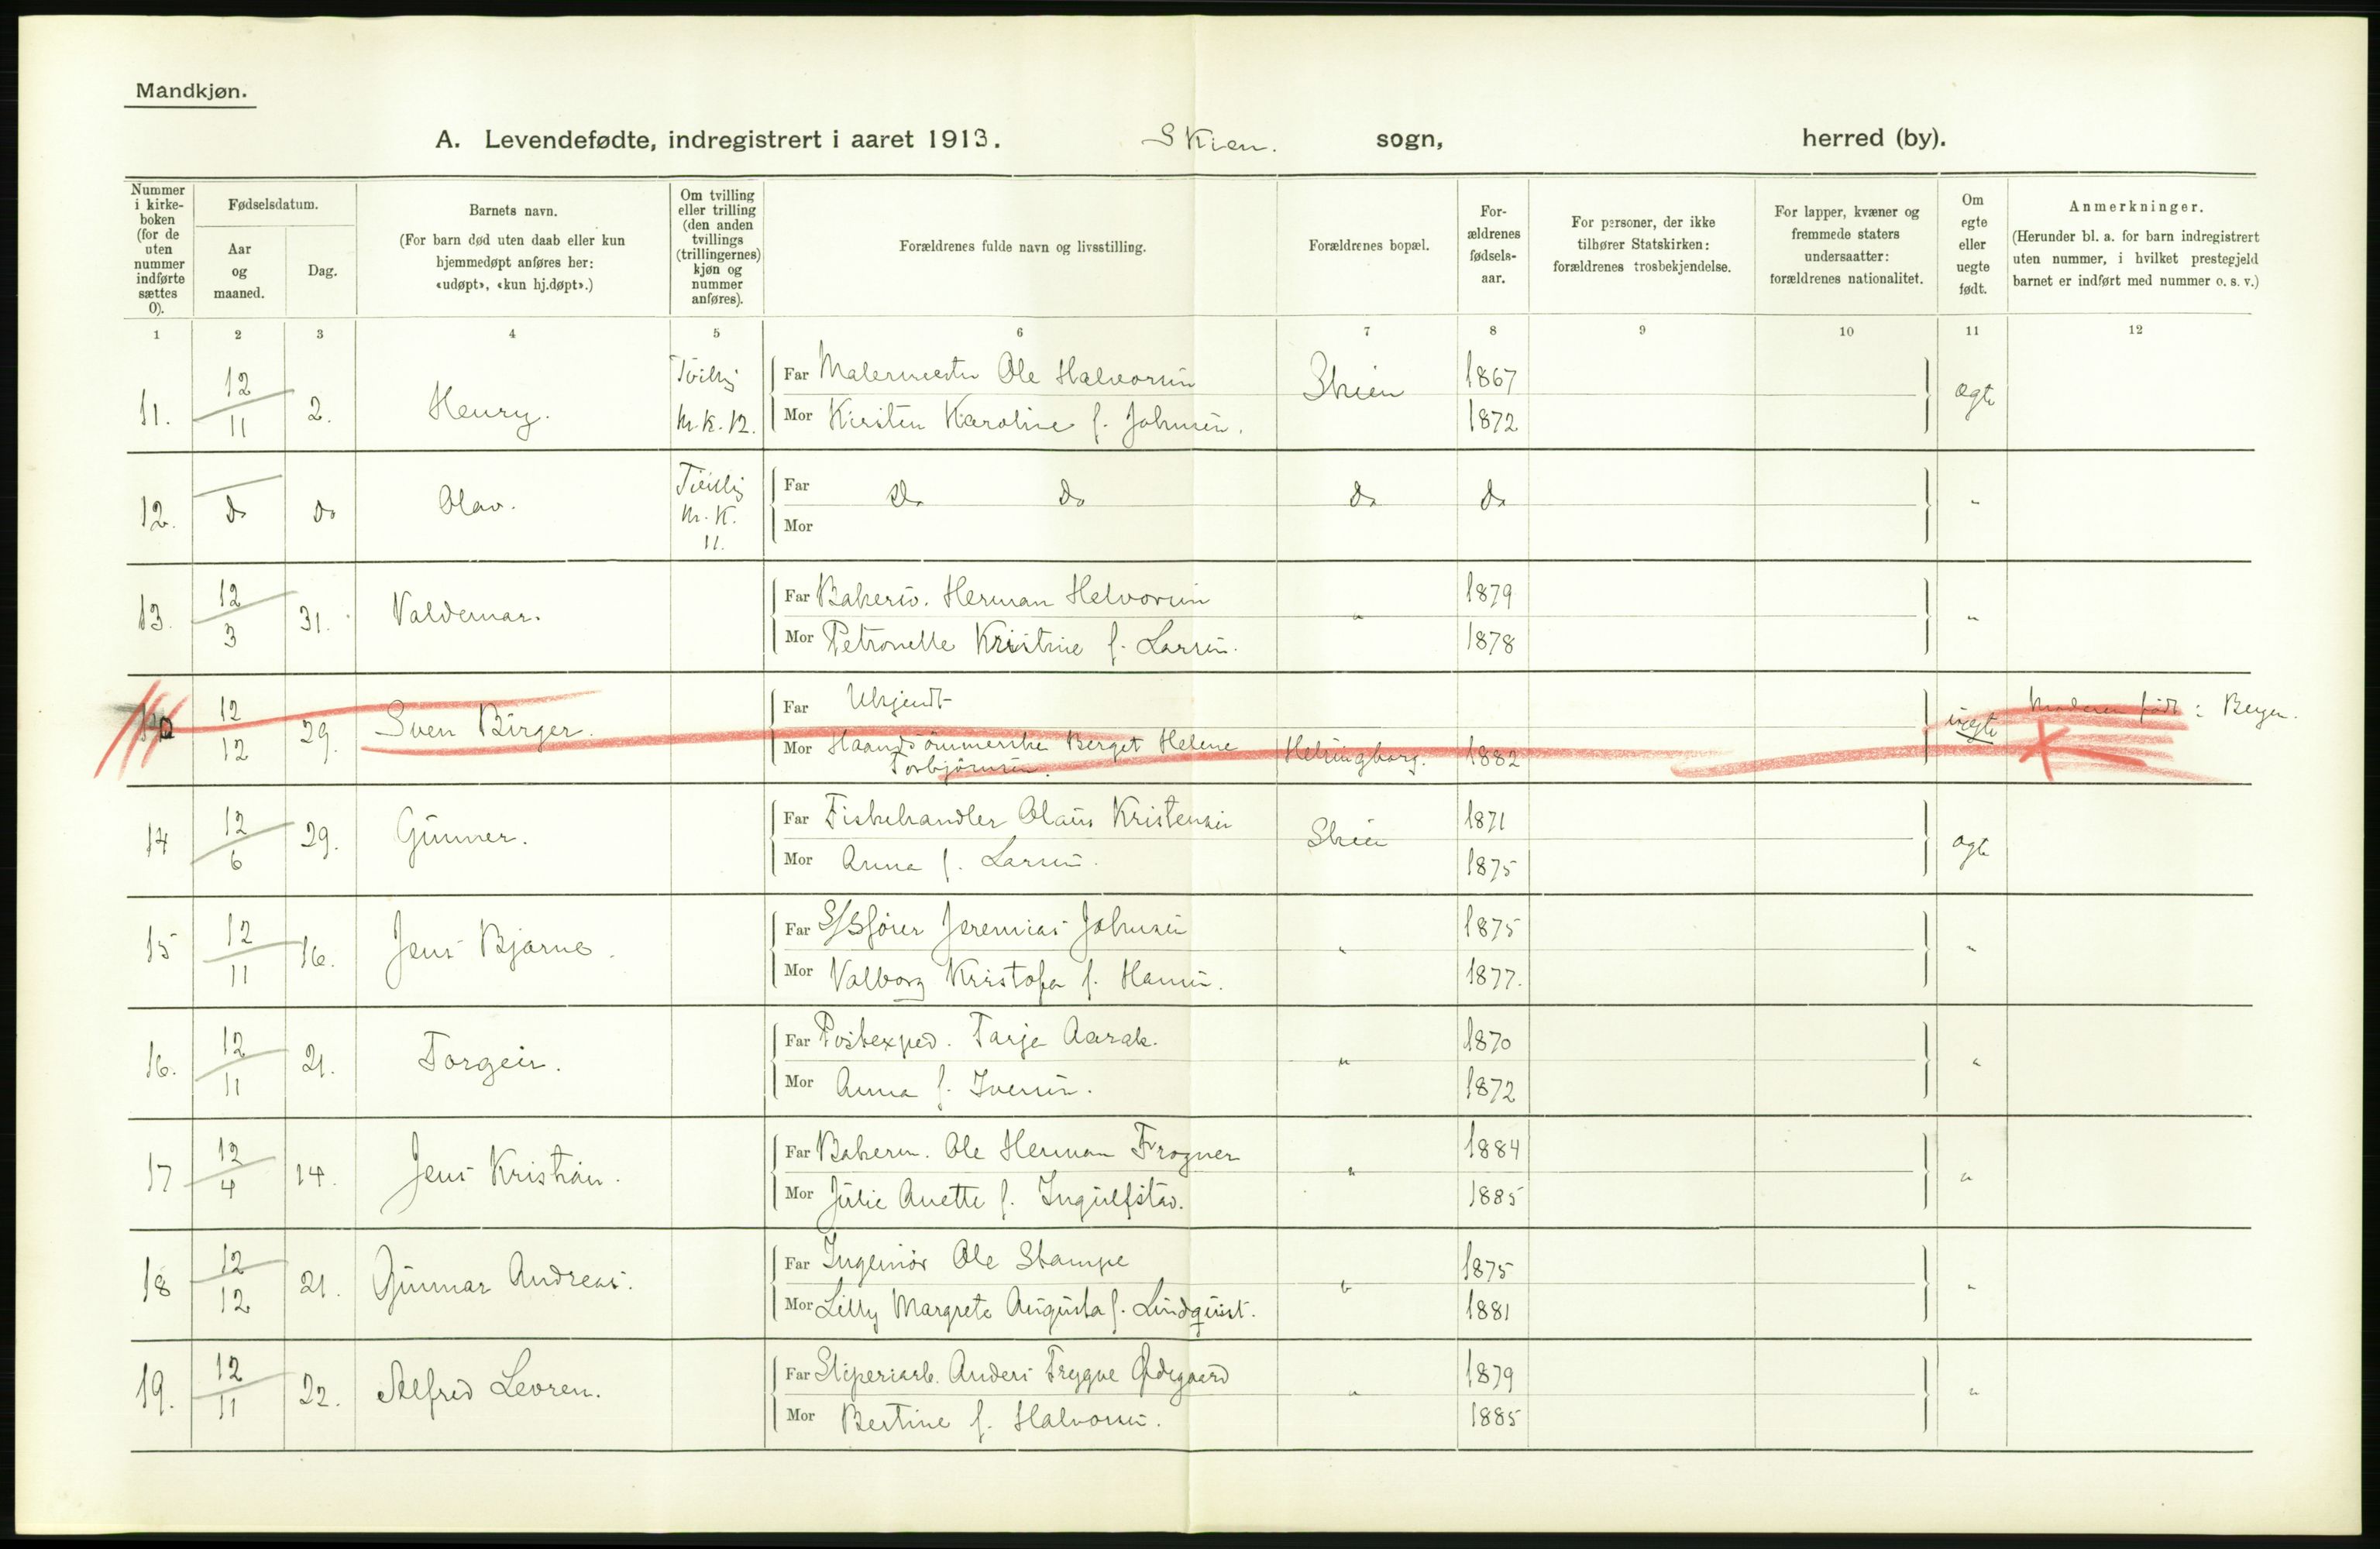 Mandkjøn.
A. Levendefødte, indregistrert i aaret 1913. Skien. sogn, herred (by).
Nummer i kirke-boken (for de uten nummer indførte sættes 0).
Fødselsdatum.
Aar og maaned.
Dag.
Barnets navn.
(For barn død uten daab eller kun hjemmedøpt anføres her: «udøpt», «kun hj.døpt».)
Om tvilling eller trilling (den anden tvillings (trillingernes) kjøn og nummer anføres).
Forældrenes fulde navn og livsstilling.
Forældrenes bopæl.
For-ældrenes fødsels-aar.
For personer, der ikke tilhører Statskirken: forældrenes trosbekjendelse.
For lapper, kvæner og fremmede staters undersaatter: forældrenes nationalitet.
Om egte eller uegte født.
Anmerkninger.
(Herunder bl. a. for barn indregistrert uten nummer, i hvilket prestegjeld barnet er indført med nummer o. s. v.)
1 2 3 4 5 6 7 8 9 10 11 12
11. 12/11 2. Henry. Tvillig m.k. 12. Far Malermester Ole Halvorsen Skien 1867 ægte
Mor Kirsten Karoline f. Johnsen. 1872
12. do do Olav. Tvillig m.k. 11. Far do do do do "
Mor
13. 12/3 31. Valdemar. Far Bakersv. Herman Helvorsen " 1879 "
Mor Petronelle Kristine f. Larsen. 1878
12/12 29. Sven Birger. Far Ukjendt uegte Moderen født: Bergen.
Mor Haandsömmerske Berget Helene Torbjörnsen. Helsingborg. 1882
14 12/6 29. Gunner. Far Fiskehandler Olaus Kristensen Skien 1871 ægte
Mor Anna f. Larsen. 1875
15 12/11 16. Jens Bjarne. Far S/Sfører Jeremias Johnsen " 1875 "
Mor Valborg Kristofa f. Hansen. 1877.
16. 12/11 21. Torgeir. Far Postexped. Tarje Aarak. " 1870 "
Mor Anna f. Iversen. 1872
17 12/4 14. Jens Kristian. Far Bakerm. Ole Herman Frogner " 1884 "
Mor Julie Anette f. Ingulfstad. 1885
18 12/12 21. Gunnar Andreas. Far Ingeniør Ole Stampe " 1875 "
Mor Lilly Margrete Augusta f. Lindquist. 1881
19. 12/11 22. Alfred Levren. Far Sliperiarb. Anders Trygve Ødegaard " 1879 "
Mor Bertine f. Halvorsen. 1885